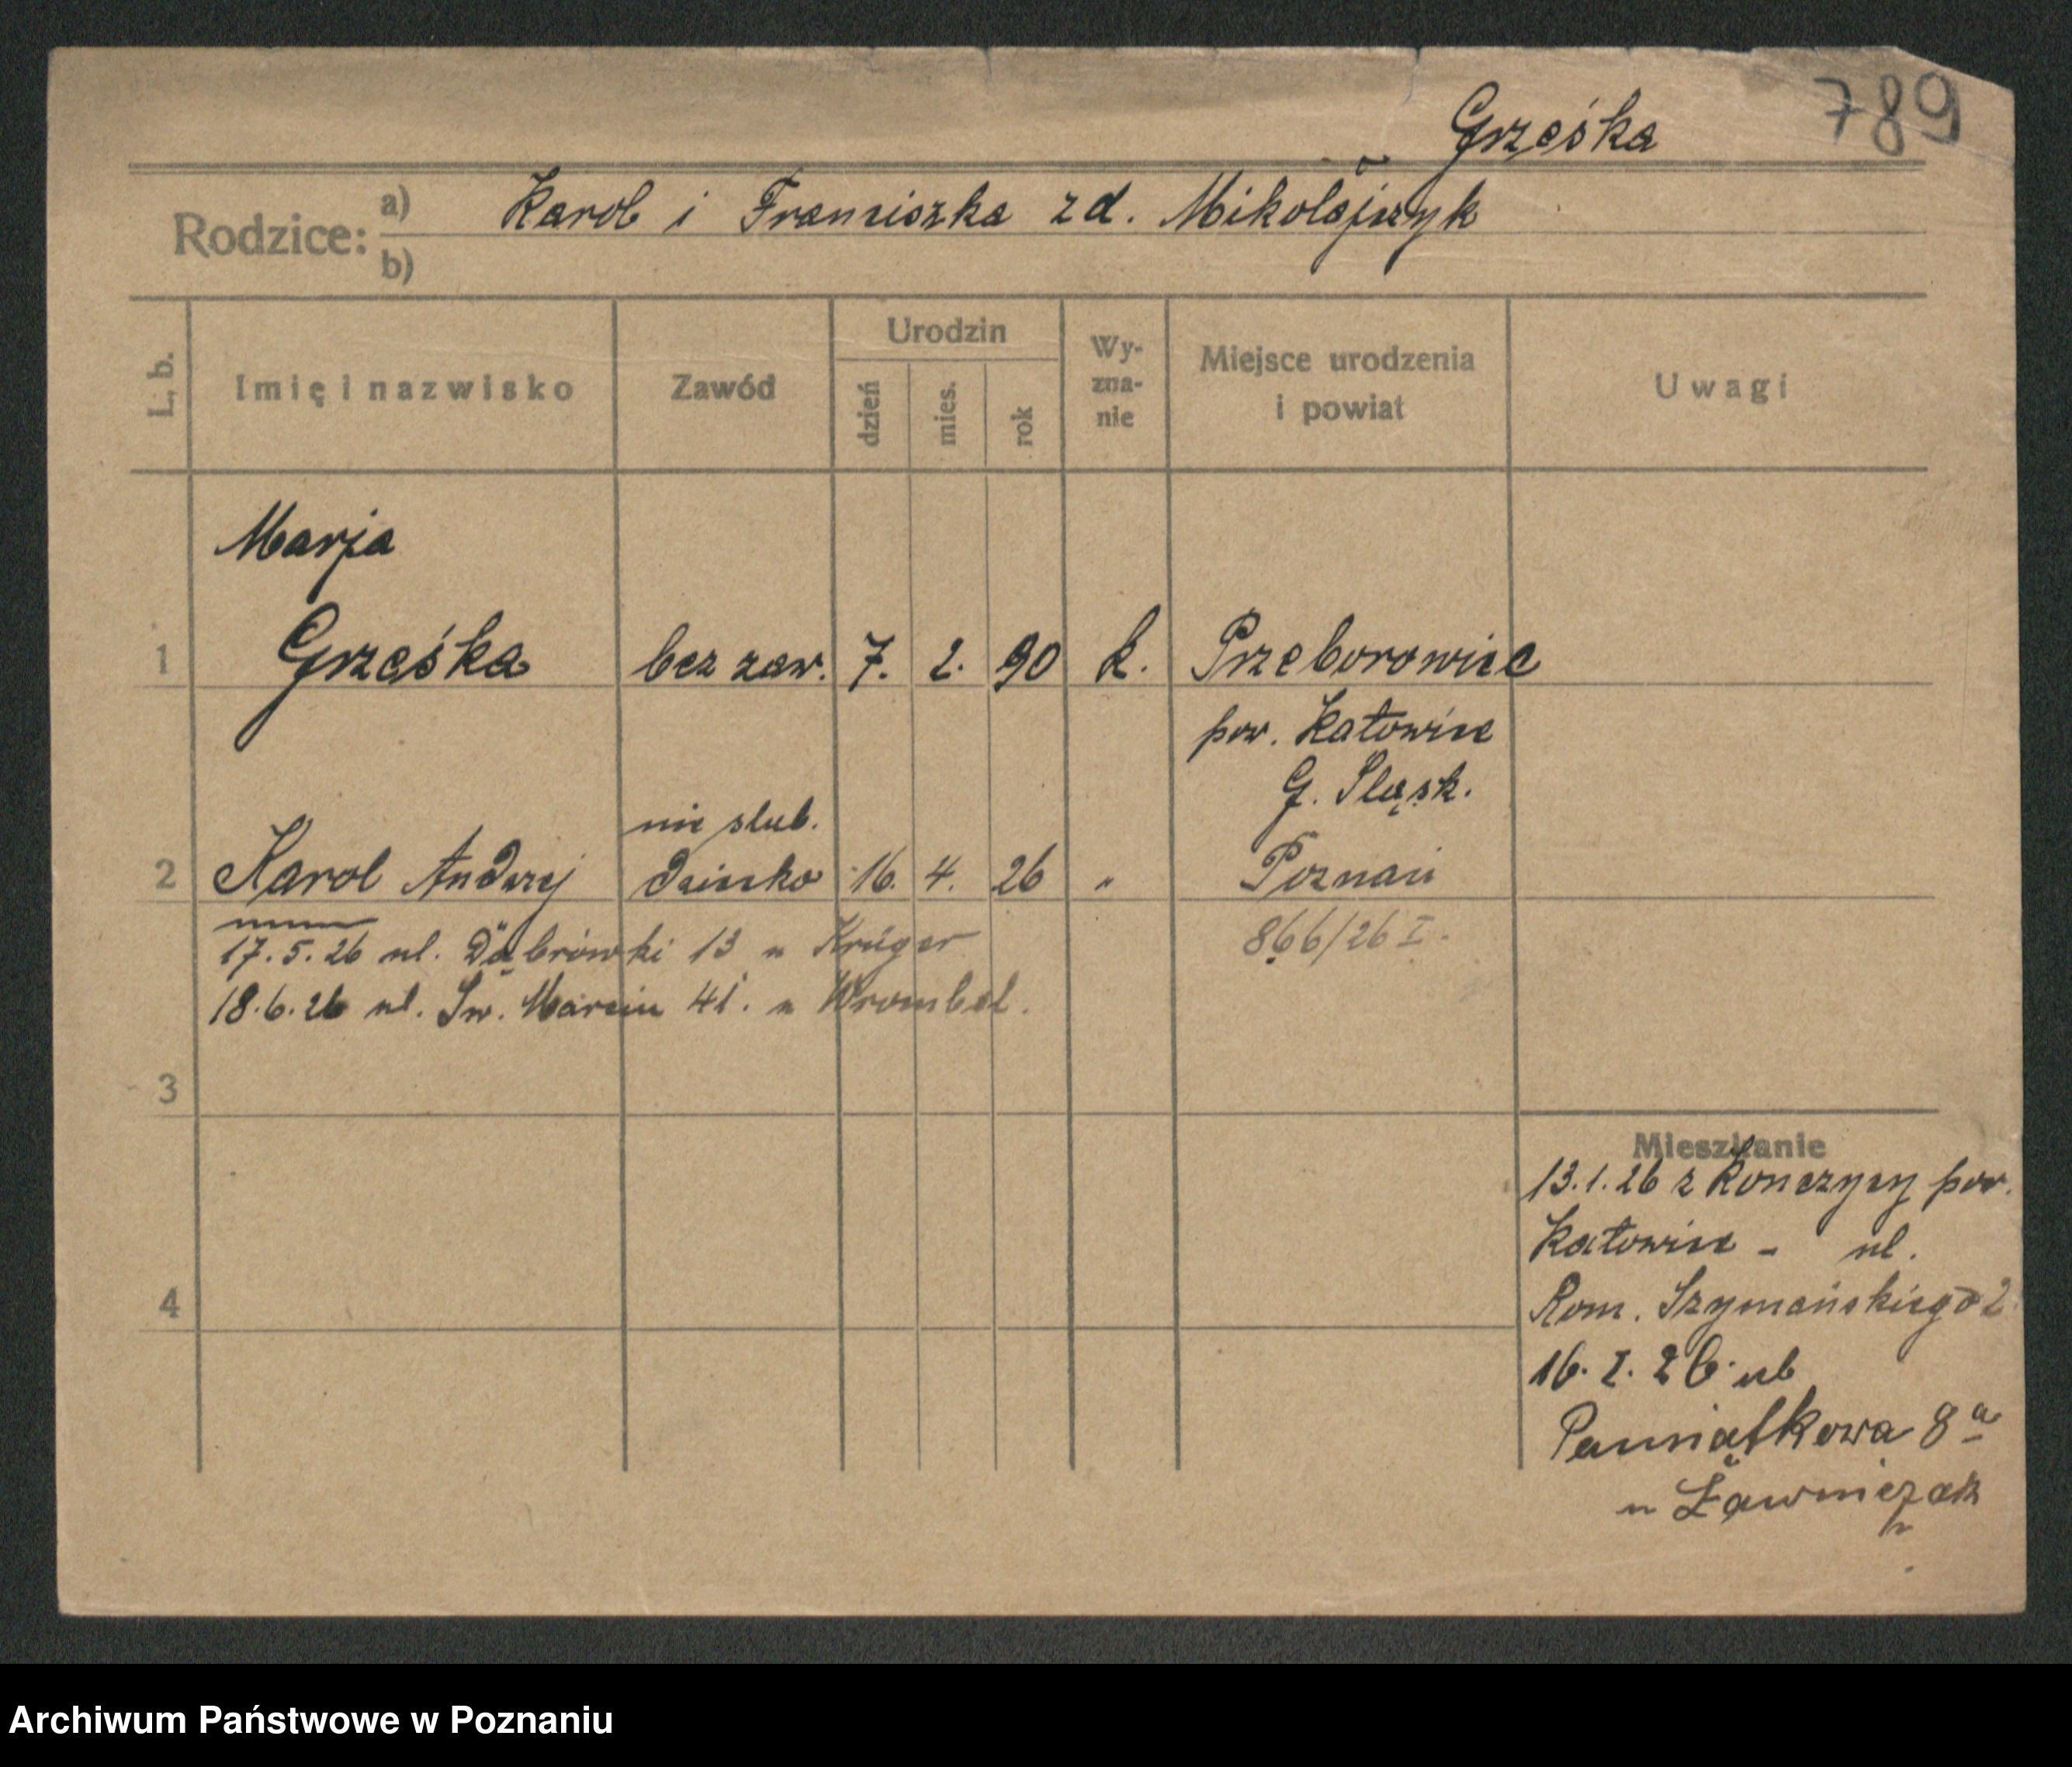 789
Grześka
Rodzice: a) Karol i Franciszka zd. Mikołajczyk
b)
L. b. Imię i nazwisko Zawód Urodzin dzień mies. rok Wy-zna-nie Miejsce urodzenia i powiat Uwagi
Marja
1 Grześka bez zaw. 7. 2. 90 k. Przeborowice
pow. Katowice
G. Sląsk.
nie slub.
2 Karol Andrzej dziecko 16. 4. 26 " Poznań
17.5.26 ul. Dąbrówki 13 u Krüger 866/26 I.
18.6.26 ul. Św. Marcin 41. u Wrombel.
3
Mieszkanie
13.1.26 z Konczycy pow.
Katowice - ul.
4 Rom. Szymańskiego 2
16. I. 26. ub
Pamiątkowa 8a
u Ławniczak
Archiwum Państwowe w Poznaniu